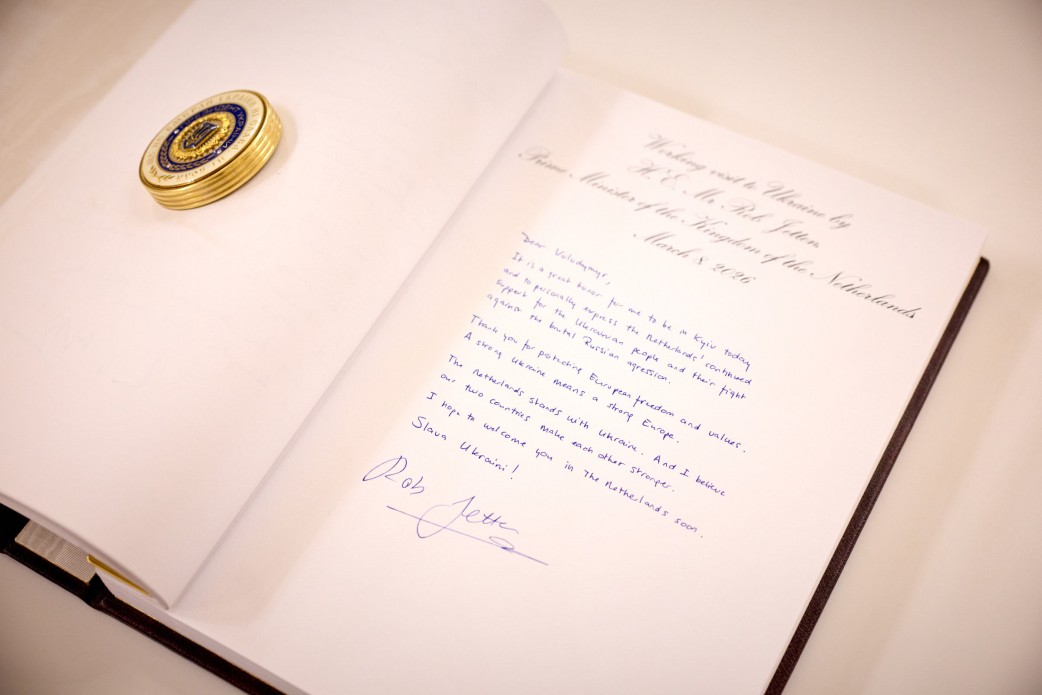 Working visit to Ukraine by
H. E. Mr. Rob Jetten
Prime Minister of the Kingdom of the Netherlands
March 8 2026
Dear Volodymyr,
It is a great honor for me to be in Kyiv today
and to personally express the Netherlands' continued
support for the Ukrainian people and their fight
against the brutal Russian agression.
Thank you for protecting European freedom and values.
A strong Ukraine means a strong Europe.
The Netherlands stands with Ukraine. And I believe
our two countries make each other stronger.
I hope to welcome you in The Netherlands soon.
Slava Ukraini!
Rob Jetten